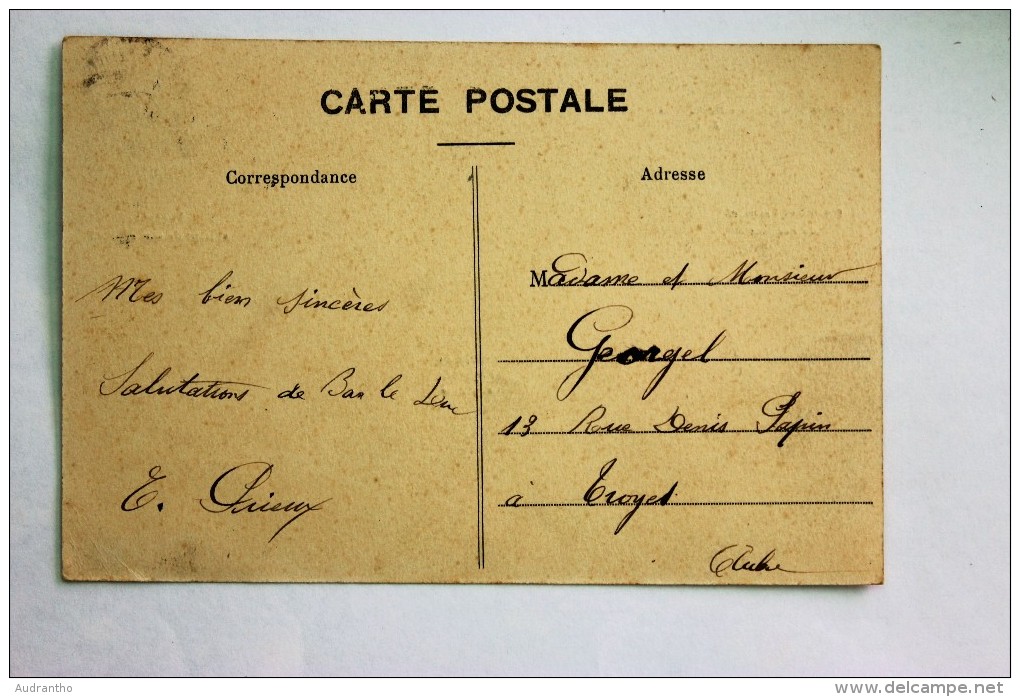 CARTE POSTALE
Correspondance
Mes bien sincères
Salutations de Bar le Duc
E. Prieux
Adresse
Madame et Monsieur
Georgel
13 Rue Denis Papin
à Troyes
Aube
Audrantho
www.delcampe.net